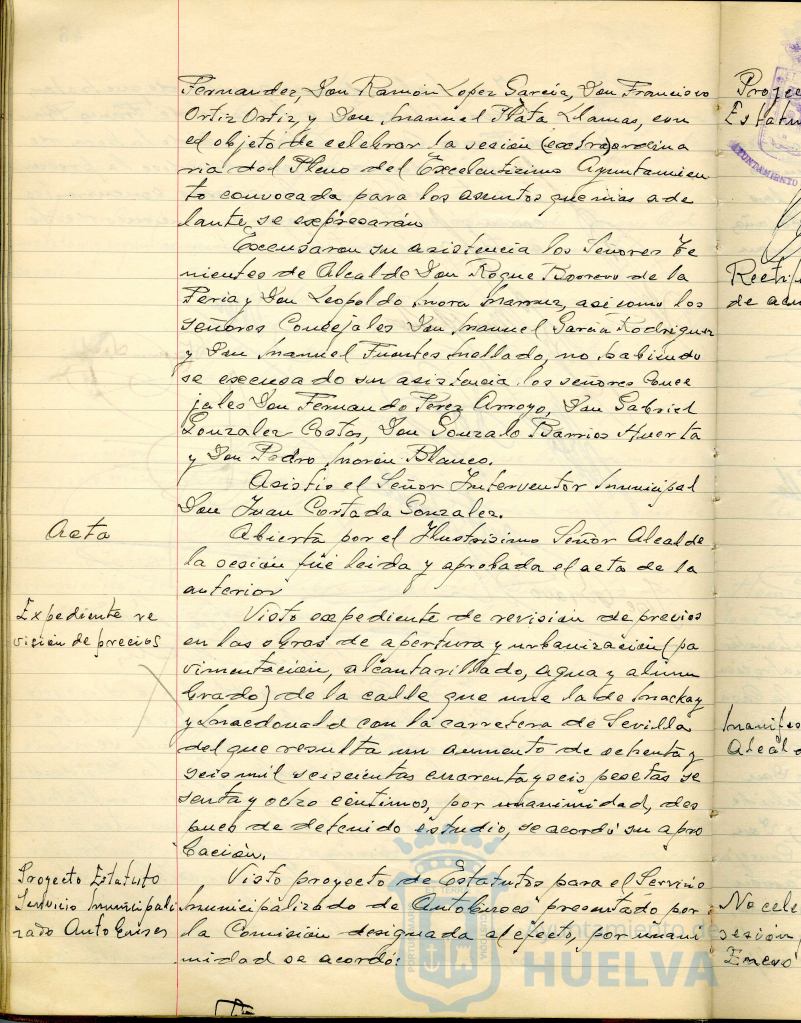 Fernandez, Don Ramón Lopez García, Don Francisco
Ortiz Ortiz, y Don Manuel Plata Llamas, con
el objeto de celebrar la sesión (extra)ordina
ria del Pleno del Excelentísimo Ayuntamien
to convocada para los asuntos que mas ade
lante, se expresarán
Excusaron su asistencia los Señores Te
nientes de Alcalde Don Roque Borrero de la
Feria y Don Leopoldo Mora, así como los
señores Concejales Don Manuel García Rodriguez
y Don Manuel Fuentes Mellado, no habiendo
se excusado su asistencia los señores Conce
jales Don Fernando Perez Arroyo, Don Gabriel
Gonzalez Costas, Don Gonzalo Barrios Huerta
y Don Pedro Morón Blanco.
Asistió el Señor Interventor Municipal
Don Juan Cortada Gonzalez.
Acta
Abierta por el Ilustrisimo Señor Alcalde
la sesión fué leida y aprobada el acta de la
anterior
Expediente re
visión de precios
Visto expediente de revisión de precios
en las obras de apertura y urbanización (pa
vimentación, alcantarillado, agua y alum
brado) de la calle que une la de Mackay
y Macdonald con la carretera de Sevilla
del que resulta un aumento de setenta y
seis mil seiscientas cuarenta y seis pesetas se
senta y ocho céntimos, por unanimidad, des
pues de detenido estudio, se acordó su apro
bación.
Proyecto Estatuto
Servicio Municipali
zado Autobuses
Visto proyecto de Estatutos para el Servicio
Municipalizado de Autobuses presentado por
la Comisión designada al efecto, por unani
midad se acordó:
Proyec
Estatu
AYUNTAMIENTO
Rectifi
de acu
Manifes
Alcald
No cele
sesión
Enero
Ayuntamiento de
HUELVA